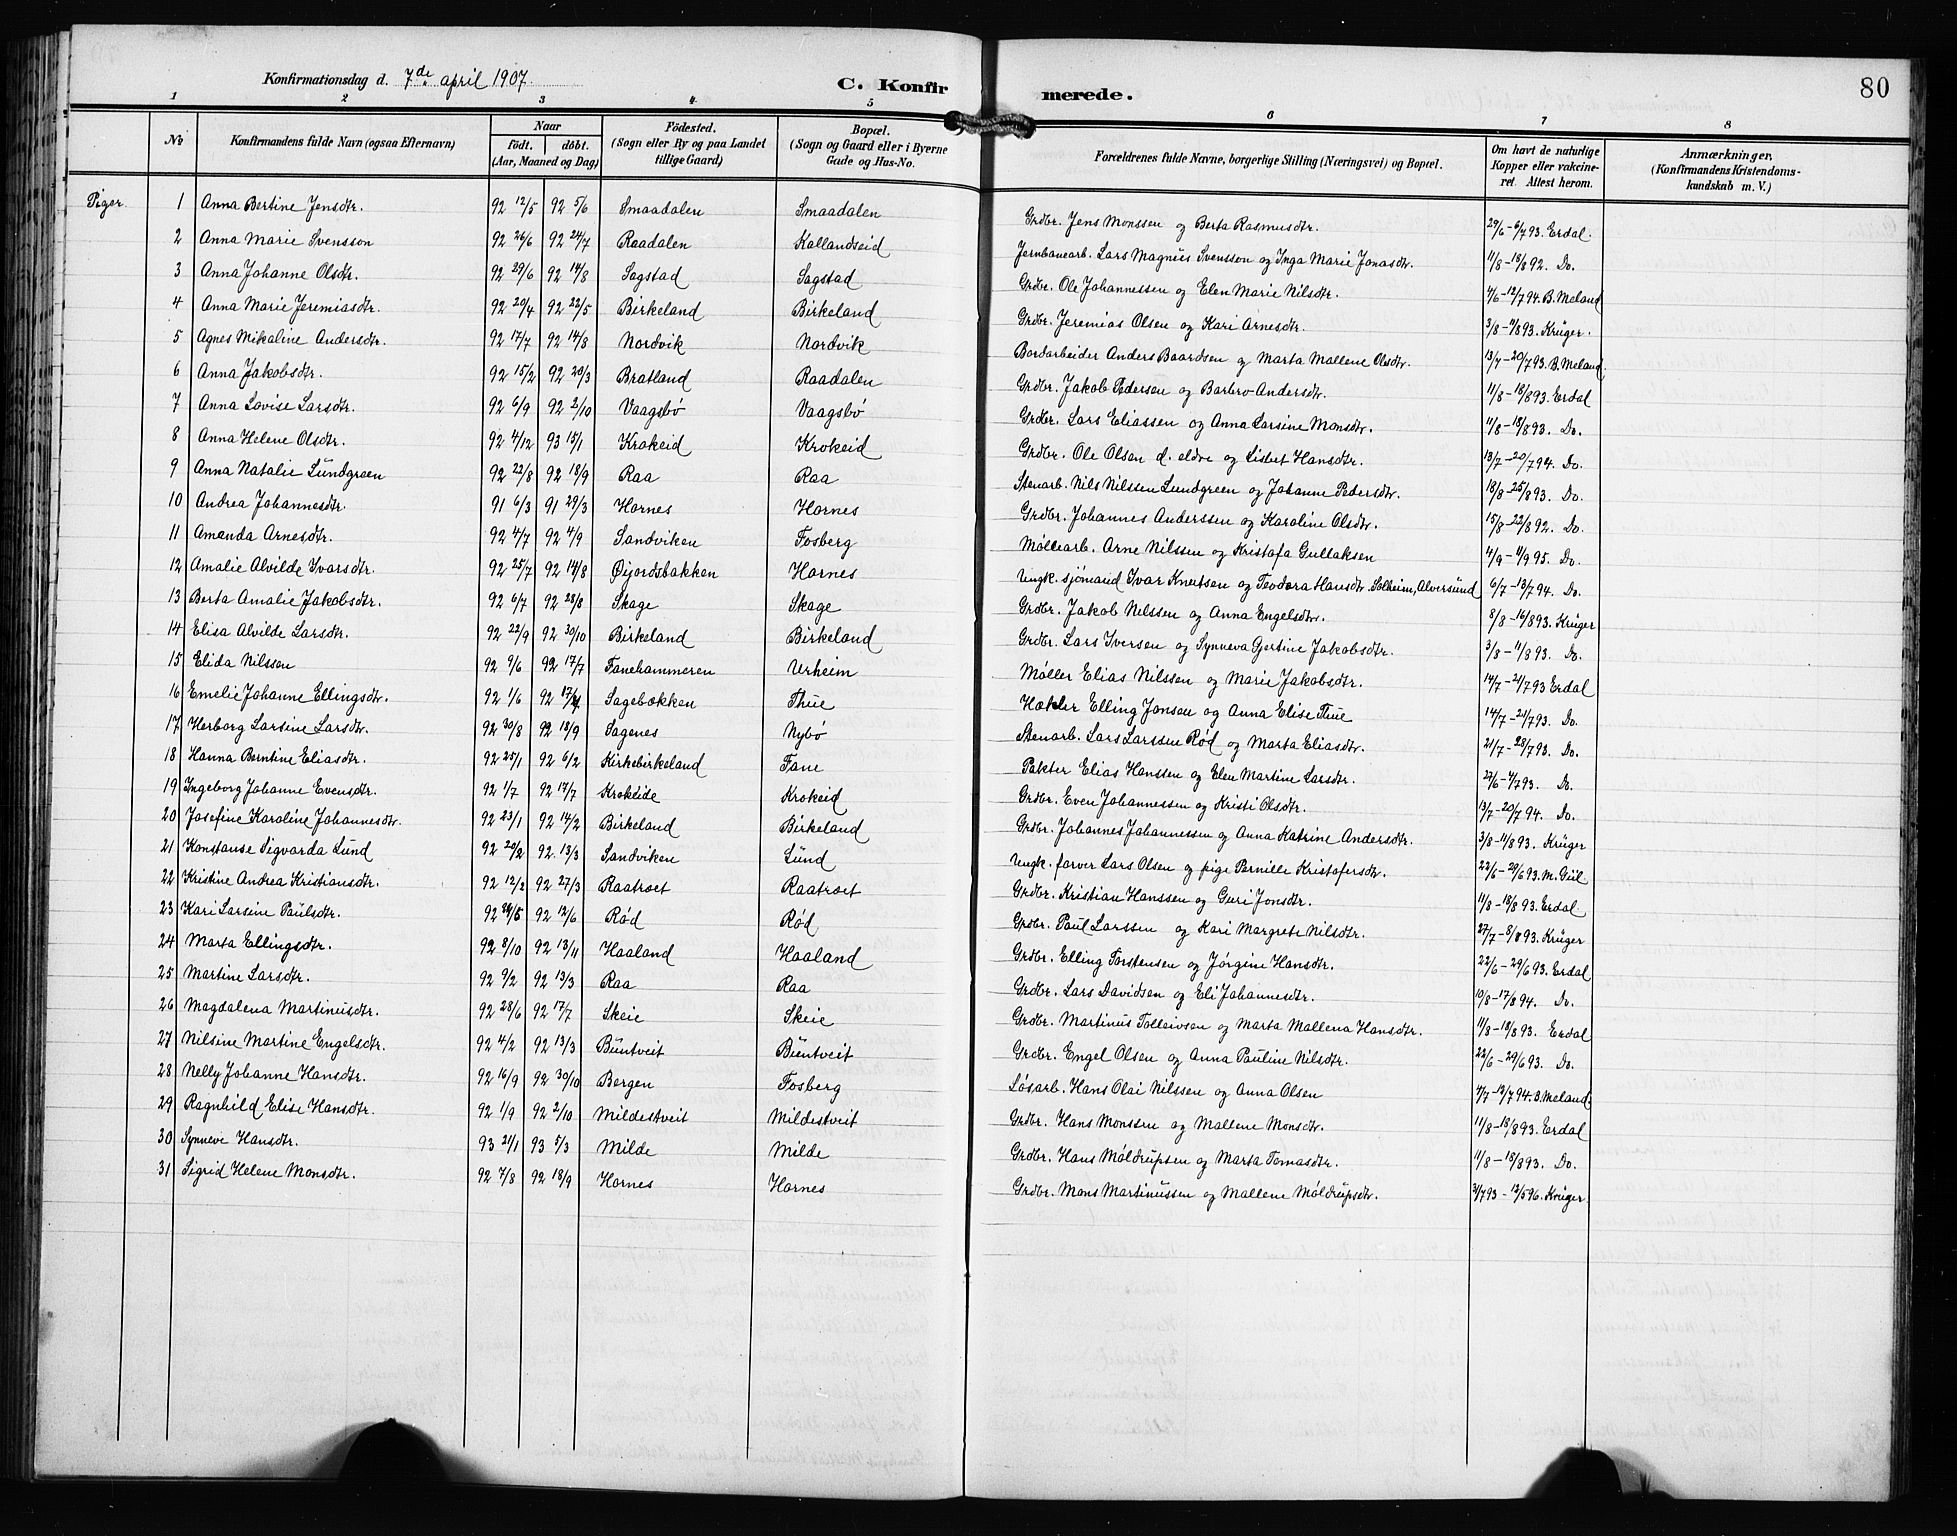 Konfirmationsdag d. 7de april 1907.
C. Konfirmerede.
80
1 2 3 4 5 6 7 8
No Konfirmandens fulde Navn (ogsaa Efternavn) Naar født. døbt. (Aar, Maaned og Dag) Fødested. (Sogn eller By og paa Landet tillige Gaard) Bopæl. (Sogn og Gaard eller i Byerne Gade og Hus-No. Forældrenes fulde Navne, borgerlige Stilling (Næringsvei) og Bopæl. Om havt de naturlige Kopper eller vakcineret. Attest herom. Anmærkninger. (Konfirmandens Kristendomskundskab m. V.)
Piger.
1 Anna Bertine Jensdtr. 92 12/5 92 5/6 Smaadalen Smaadalen Grdbr. Jens Monssen og Berta Rasmusdtr. 29/6-6/793. Erdal.
2 Anna Marie Svensson 92 26/6 92 24/7 Raadalen Kallandseid Jernbanearb. Lars Magnus Svensson og Inga Marie Jonasdtr. 11/8-18/892. Do.
3 Anna Johanne Olsdtr. 92 29/6 92 14/8 Sagstad Sagstad Grdbr. Ole Johannessen og Elen Marie Nilsdtr. 4/6-12/794. B. Meland
4 Anna Marie Jeremiasdtr. 92 20/4 92 22/5 Birkeland Birkeland Grdbr. Jeremias Olsen og Kari Arnesdtr. 3/8-11/893. Krüger.
5 Agnes Mikaline Andersdtr. 92 17/7 92 14/8 Nordvik Nordvik Bordarbeider Anders Baardsen og Marta Mallene Olsdtr. 13/7-20/793. B. Meland.
6 Anna Jakobsdtr. 92 15/2 92 20/3 Bratland Raadalen Grdbr. Jakob Pedersen og Barbro Andersdtr. 11/8-18/893. Erdal
7 Anna Lovise Larsdtr. 92 6/9 92 2/10 Vaagsbø Vaagsbø Grdbr. Lars Eliassen og Anna Larsine Monsdtr. 11/8-18/893. Do.
8 Anna Helene Olsdtr. 92 4/12 93 15/1 Krokeid Krokeid Grdbr. Ole Olsen d. eldre og Lisbet Hansdtr. 13/7-20/794. Do.
9 Anna Natalie Lundgreen 92 22/8 92 18/9 Raa Raa Stenarb. Nils Nilssen Lundgreen og Johanne Pedersdtr. 18/8-25/893. Do.
10 Andrea Johannesdtr. 91 6/3 91 29/3 Hornes Hornes Grdbr. Johannes Anderssen og Karoline Olsdtr. 15/8-22/892. Do.
11 Amanda Arnesdtr. 92 4/7 92 4/9 Sandviken Fosberg Møllearb. Arne Nilssen og Kristofa Gullaksen 4/9-11/995. Do.
12 Amalie Alvilde Ivarsdtr. 92 25/7 92 14/8 Øijordsbakken Hornes Ungk. sjømand Ivar Knutsen og Teodora Hansdtr. Solheim, Alversund 6/7-13/794. Do.
13 Berta Amalie Jakobsdtr. 92 6/7 92 28/8 Skage Skage Grdbr. Jakob Nilssen og Anna Engelsdtr. 8/8-16/893. Krüger
14 Elisa Alvilde Larsdtr. 92 22/9 92 30/10 Birkeland Birkeland Grdbr. Lars Iversen og Synneva Gjertine Jakobsdtr. 3/8-11/893. Do.
15 Elida Nilssen 92 9/6 92 17/7 Fanehammeren Urheim Møller Elias Nilssen og Marie Jakobsdtr. 14/7-21/793 Erdal
16 Emelie Johanne Ellingsdtr. 92 1/6 92 17/7 Sagebækken Thue Hækler Elling Jonsen og Anna Elise Thue 14/7-21/793. Do.
17 Herborg Larsine Larsdtr. 92 30/8 92 18/9 Sagenes Nybø Stenarb. Lars Larssen Rød og Marta Eliasdtr. 21/7-28/793. Do.
18 Hanna Berntine Eliasdtr. 92 25/1 92 6/2 Kirkebirkeland Fane Pakter Elias Hanssen og Elen Martine Larsdtr. 27/6-4/793. Do.
19 Ingeborg Johanne Evensdtr. 92 1/7 92 17/7 Krokeide Krokeid Grdbr. Even Johannessen og Kristi Olsdtr. 13/7-20/794. Do.
20 Josefine Karoline Johannesdtr. 92 23/1 92 14/2 Birkeland Birkeland Grdbr. Johannes Johannessen og Anna Katrine Andersdtr. 3/8-11/893. Krüger
21 Konstanse Sigvarda Lund 92 20/2 92. 13/3 Sandviken Lund Ungk. farver Lars Olsen og pige Pernille Kristofersdtr. 22/6-29/693. M. Giil.
22 Kristine Andrea Kristiansdtr. 92 12/2 92 27/3 Raatræt Raatræt Grdbr. Kristian Hanssen og Guri Jonsdtr. 11/8-18/893. Erdal
23 Kari Larsine Paulsdtr. 92 /5 92 12/6 Rød Rød Grdbr. Paul Larssen og Kari Margrete Nilsdtr. 27/7-8/893. Krüger
24 Marta Ellingsdtr. 92 8/10 92 13/11 Haaland Haaland Grdbr. Elling Torstensen og Jørgine Hansdtr. 22/6-29/693. Erdal
25 Martine Larsdtr. 92 9/2 92 13/3 Raa Raa Grdbr. Lars Davidsen og Eli Johannesdtr. 10/8-17/894. Do.
26 Magdalena Martinusdtr. 92 28/6 92 17/7 Skeie Skeie Grdbr. Martinus Tolleivsen og Marta Mallena Hansdtr. 11/8-18/893. Erdal
27 Nilsine Martine Engelsdtr. 92 4/2 92 13/3 Buntveit Buntveit Grdbr. Engel Olsen og Anna Pauline Nilsdtr. 22/6-29/693. Do.
28 Nelly Johanne Hansdtr. 92 16/9 92 30/10 Bergen Fosberg Løsarb. Hans Olai Nilssen og Anna Olsen 4/7-12/794. B. Meland.
29 Ragnhild Elise Hansdtr. 92 1/9 92 2/10 Mildestveit Mildestveit Grdbr. Hans Monssen og Mallene Monsdtr. 11/8-18/893. Erdal
30 Synneve Hansdtr. 93 21/1 93 5/3 Milde Milde Grdbr. Hans Møldrupsen og Marta Tomasdtr. 11/8-18/893. Do.
31 Sigrid Helene Monsdtr. 92 7/8 92 18/9 Hornes Hornes Grdbr. Mons Martinussen og Mallene Møldrupsdtr. 3/793-12/596. Krüger